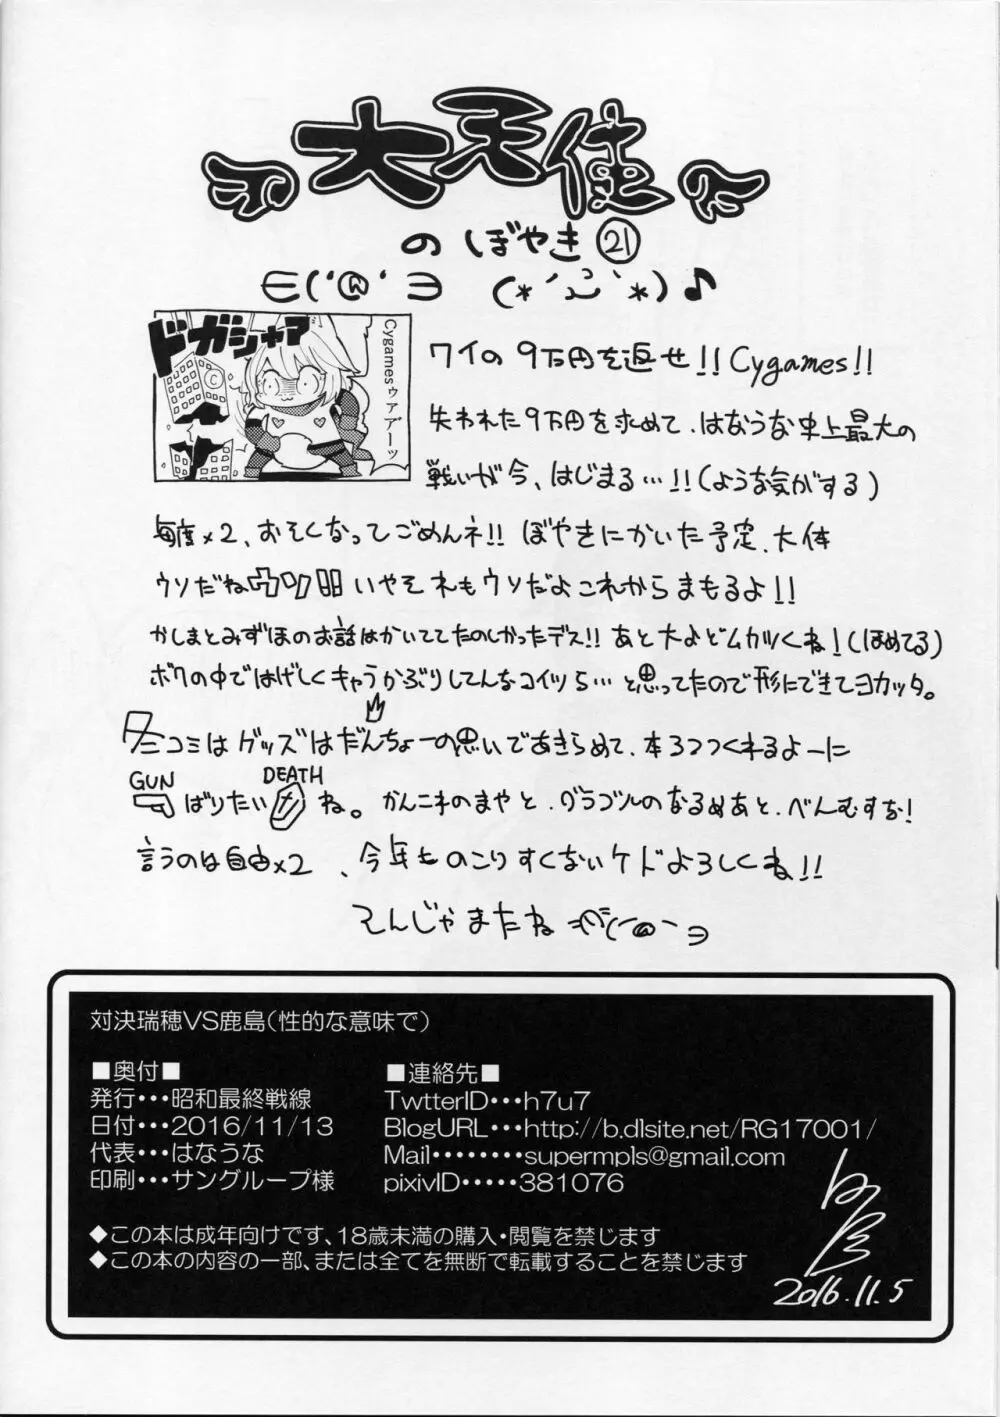 大天使
のぼやき㉑
∈('@'∋ (*´ω`*)♪
ドガシャア
Cygamesゥアアーッ
C
ワイの9万円を返せ!!Cygames!!
失われた9万円を求めて、はなうな史上最大の
戦いが今、はじまる…!!(ような気がする)
毎度×2、おそくなってごめんネ!!ぼやきにかいた予定、大体
ウソだねウソ!!いやそれもウソだよこれからまもるよ!!
かしまとみずほのお話はかいててたのしかったデス!!あと大よどムカツくね!(ほめてる)
ボクの中ではげしくキャラかぶりしてんなコイツら…と思ってたので形にできてヨカッタ。
冬コミはグッズはだんちょーの思いであきらめて、本3つつくれるよーに
GUN DEATH
ばりたいね。かんこれのまやと、グラブルのなるめあと、べんむすな!
言うのは自由×2、今年ものこりすくないケドよろしくね!!
そんじゃまたね
対決瑞穂VS鹿島(性的な意味で)
■奥付■
発行・・・昭和最終戦線
日付・・・2016/11/13
代表・・・はなうな
印刷・・・サングループ様
■連絡先■
TwtterID・・・h7u7
BlogURL・・・http://b.dlsite.net/RG17001/
Mail・・・・・・・・supermpls@gmail.com
pixivID・・・・・381076
◆この本は成年向けです、18歳未満の購入・閲覧を禁じます
◆この本の内容の一部、または全てを無断で転載することを禁じます
2016.11.5